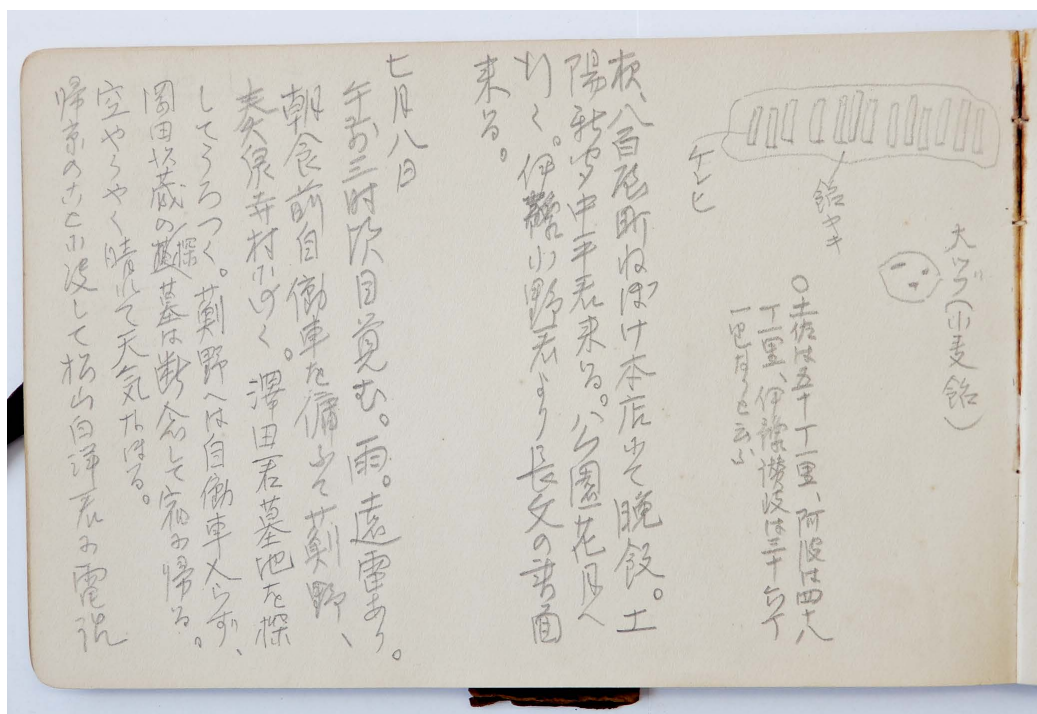 大ツブ(小麦飴)
飴ヤキ
ケンピ
〇土佐は五十丁一里、阿波は四十八
丁一里、伊豫讃岐は三十六丁
一里なりと云ふ
夜、八百屋町ねぼけ本店にて晩餐。土
陽新聞中平君来る。公園花月へ
行く。伊豫小野君より長文の書面
来る。
七月八日
午前三時頃目覚む。雨。遠雷あり。
朝食前自働車を傭ふて薊野、
秦泉寺村に行く。澤田君墓地を探
してうろつく。薊野へは自働車入らず、
岡田以蔵の探墓は断念して宿に帰る。
空やうやく晴れて天気なほる。
帰京のことに決して松山白洋君に電話